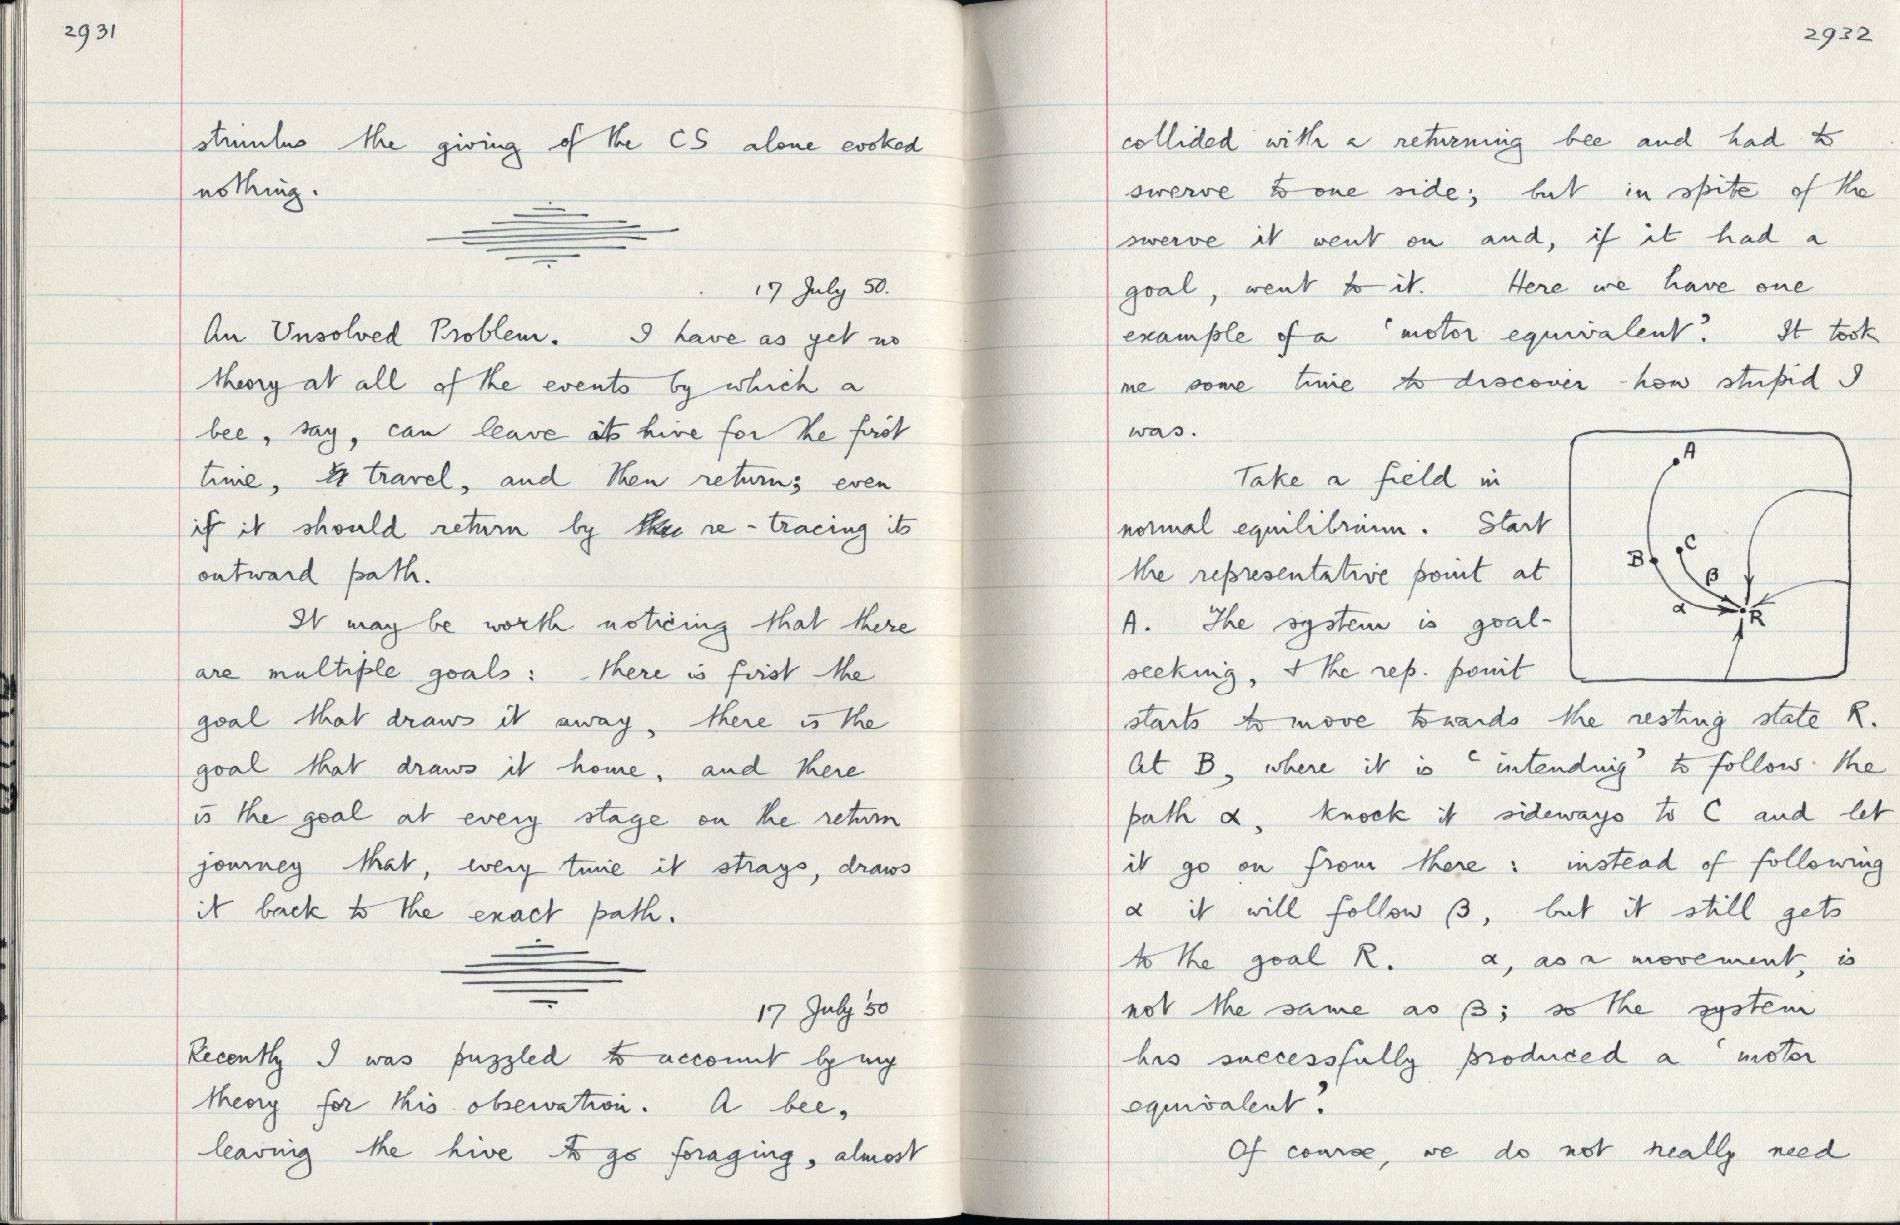 2931
stimulus the giving of the CS alone evoked
nothing.
17 July 50.
An Unsolved Problem. I have as yet no
theory at all of the events by which a
bee, say, can leave its hive for the first
time, travel, and then return; even
if it should return by re-tracing its
outward path.
It may be worth noticing that there
are multiple goals: there is first the
goal that draws it away, there is the
goal that draws it home, and there
is the goal at every stage on the return
journey that, every time it strays, draws
it back to the exact path.
17 July '50
Recently I was puzzled to account by my
theory for this observation. A bee,
leaving the hive to go foraging, almost
2932
collided with a returning bee and had to
swerve to one side; but in spite of the
swerve it went on and, if it had a
goal, went to it. Here we have one
example of a 'motor equivalent'. It took
me some time to discover how stupid I
was.
Take a field in
normal equilibrium. Start
the representative point at
A. The system is goal-
seeking, & the rep. point
starts to move towards the resting state R.
At B, where it is 'intending' to follow the
path α, knock it sideways to C and let
it go on from there: instead of following
α it will follow β, but it still gets
to the goal R. α, as a movement, is
not the same as β; so the system
has successfully produced a 'motor
equivalent'.
Of course, we do not really need
A
B
C
β
α
R